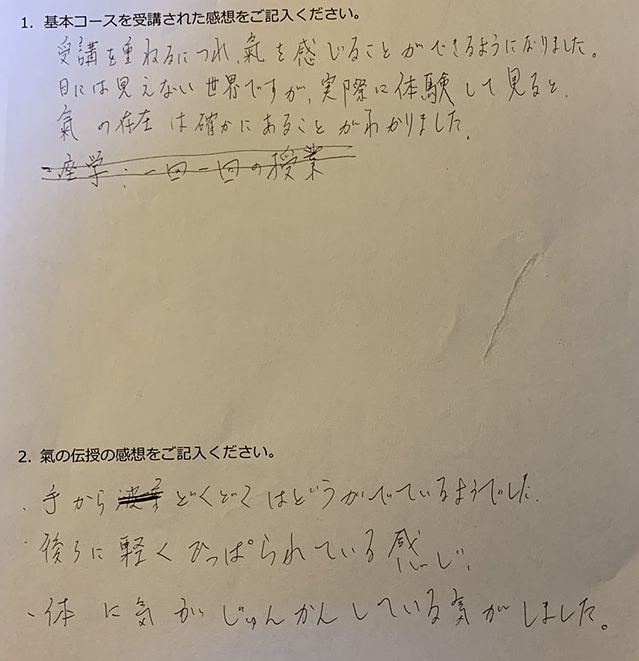 1. 基本コースを受講された感想をご記入ください。
受講を重ねるにつれ、氣を感じることができるようになりました。
目には見えない世界ですが、実際に体験して見ると、
氣の存在は確かにあることがわかりました。
座学:一回一回の授業
2. 氣の伝授の感想をご記入ください。
・手から どくどくはどうがでているようでした。
・後ろに軽くひっぱられている感じ。
・体に気がじゅんかんしている気がしました。